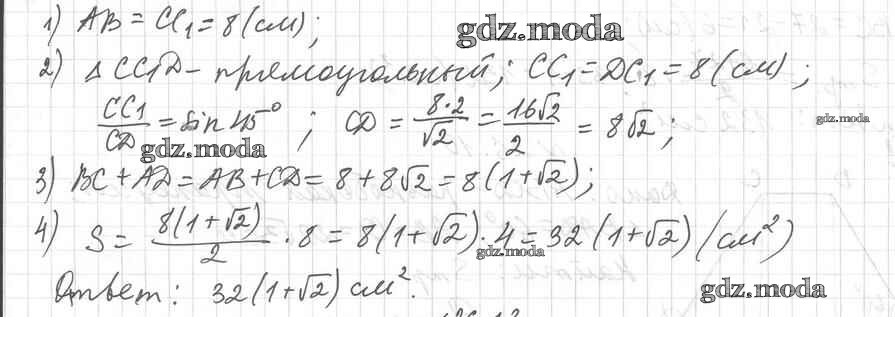 1) AB = CC₁ = 8 (см);
gdz.moda
2) △ CC₁D - прямоугольный; CC₁ = DC₁ = 8 (см);
CC₁/CD = sin 45°; CD = 8·2/√2 = 16√2/2 = 8√2;
gdz.moda
gdz.moda
3) BC + AD = AB + CD = 8 + 8√2 = 8(1+√2);
4) S = 8(1+√2)/2 · 8 = 8(1+√2)·4 = 32(1+√2) (см²)
gdz.moda
Ответ: 32(1+√2) см².
gdz.moda